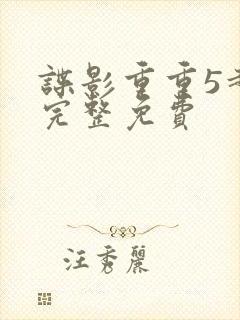 諜影重重5
完整免費
汪秀麗